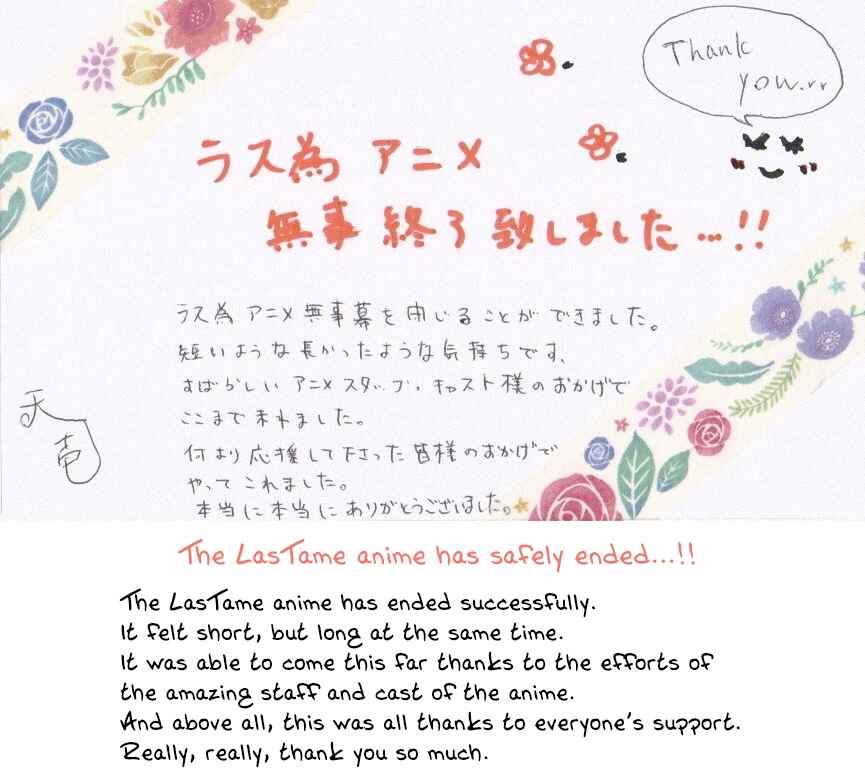 Thank
you.
ラス為 アニメ
無事 終了 致しました…!!
ラス為 アニメ 無事幕を閉じることができました。
短いような長かったような気持ちです、
すばらしい アニメ スタッフ・キャスト様のおかげで
ここまで来れました。
何より応援して下さった皆様のおかげで
やってこれました。
本当に本当にありがとうございました。
天
竜
The LasTame anime has safely ended...!!
The LasTame anime has ended successfully.
It felt short, but long at the same time.
It was able to come this far thanks to the efforts of
the amazing staff and cast of the anime.
And above all, this was all thanks to everyone's support.
Really, really, thank you so much.